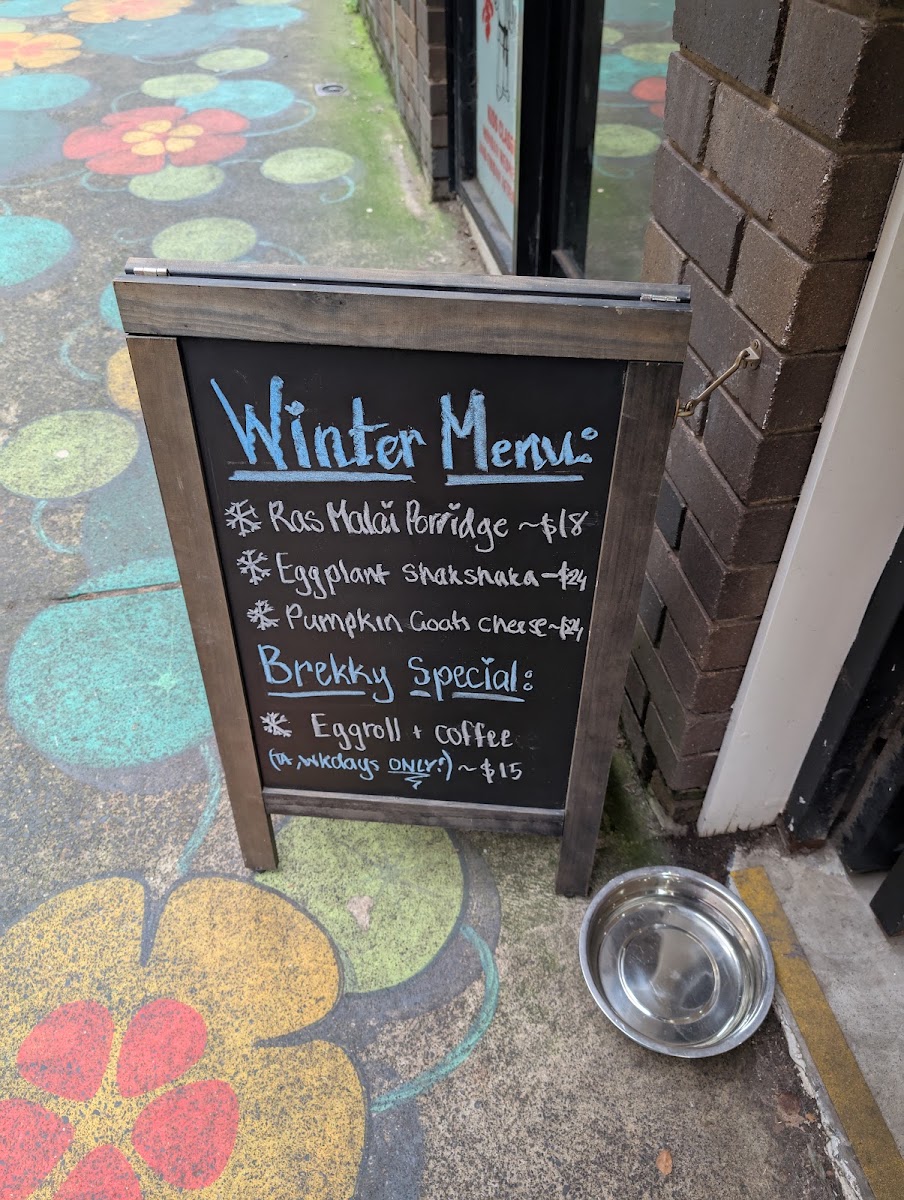 Winter Menu:
Ras Malai Porridge ~ $18
Eggplant shakshaka - $24
Pumpkin Goats cheese ~ $24
Brekky Special:
Eggroll + coffee
(TA, wkdays ONLY!) ~ $15